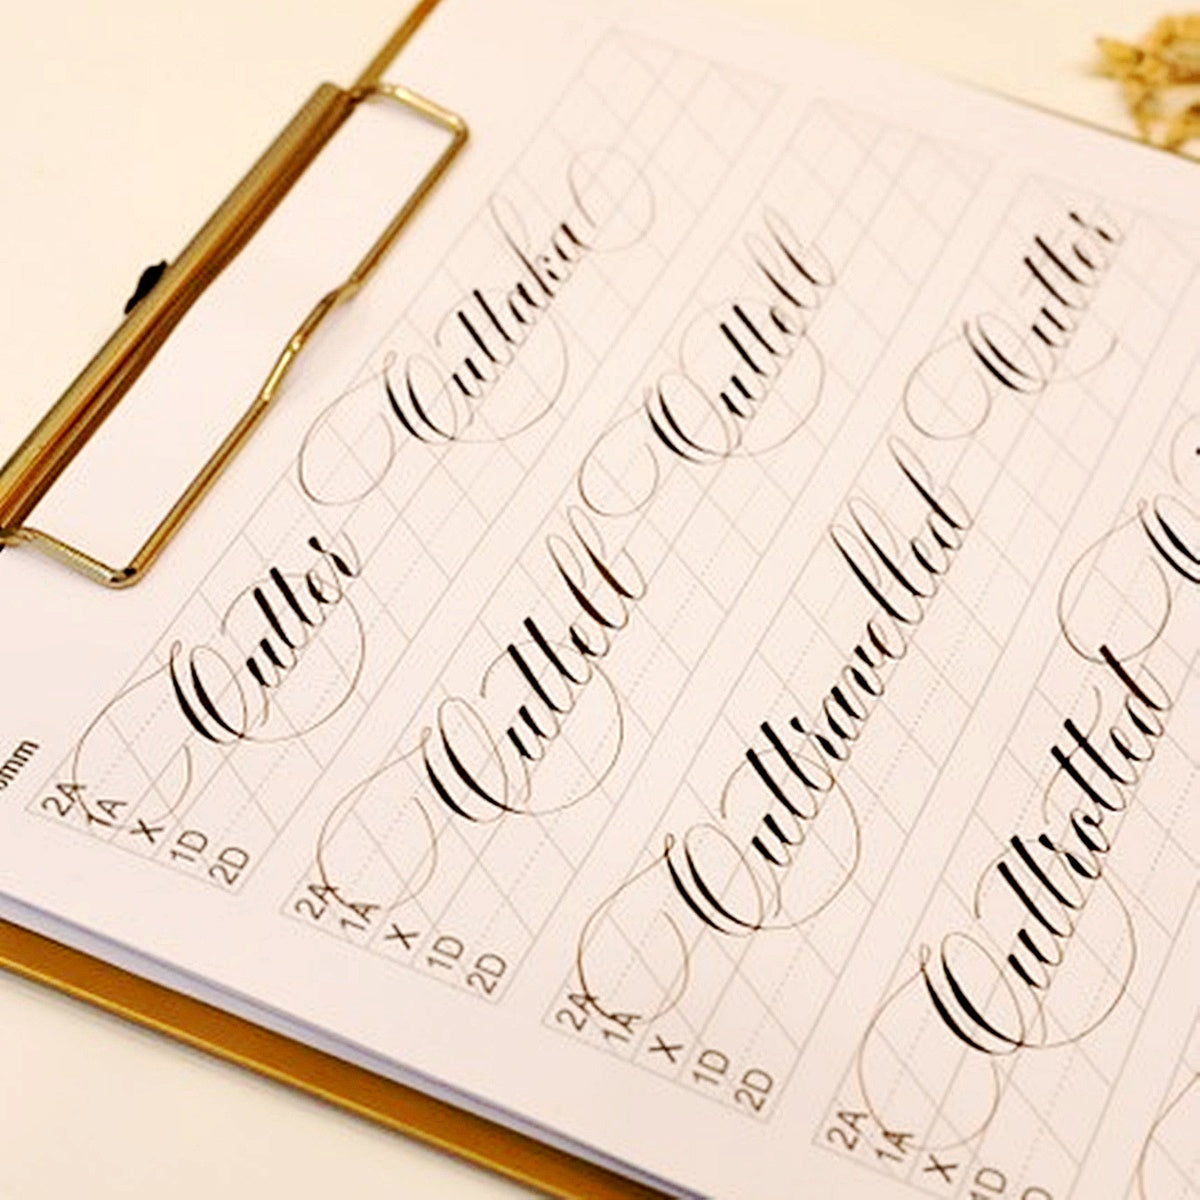 2A
1A
X
1D
2D
Outter Outtaka
2A
1A
X
1D
2D
Outtell Outtell
2A
1A
X
1D
2D
Outtravelled Outter
2A
1A
X
1D
2D
Outtrotted